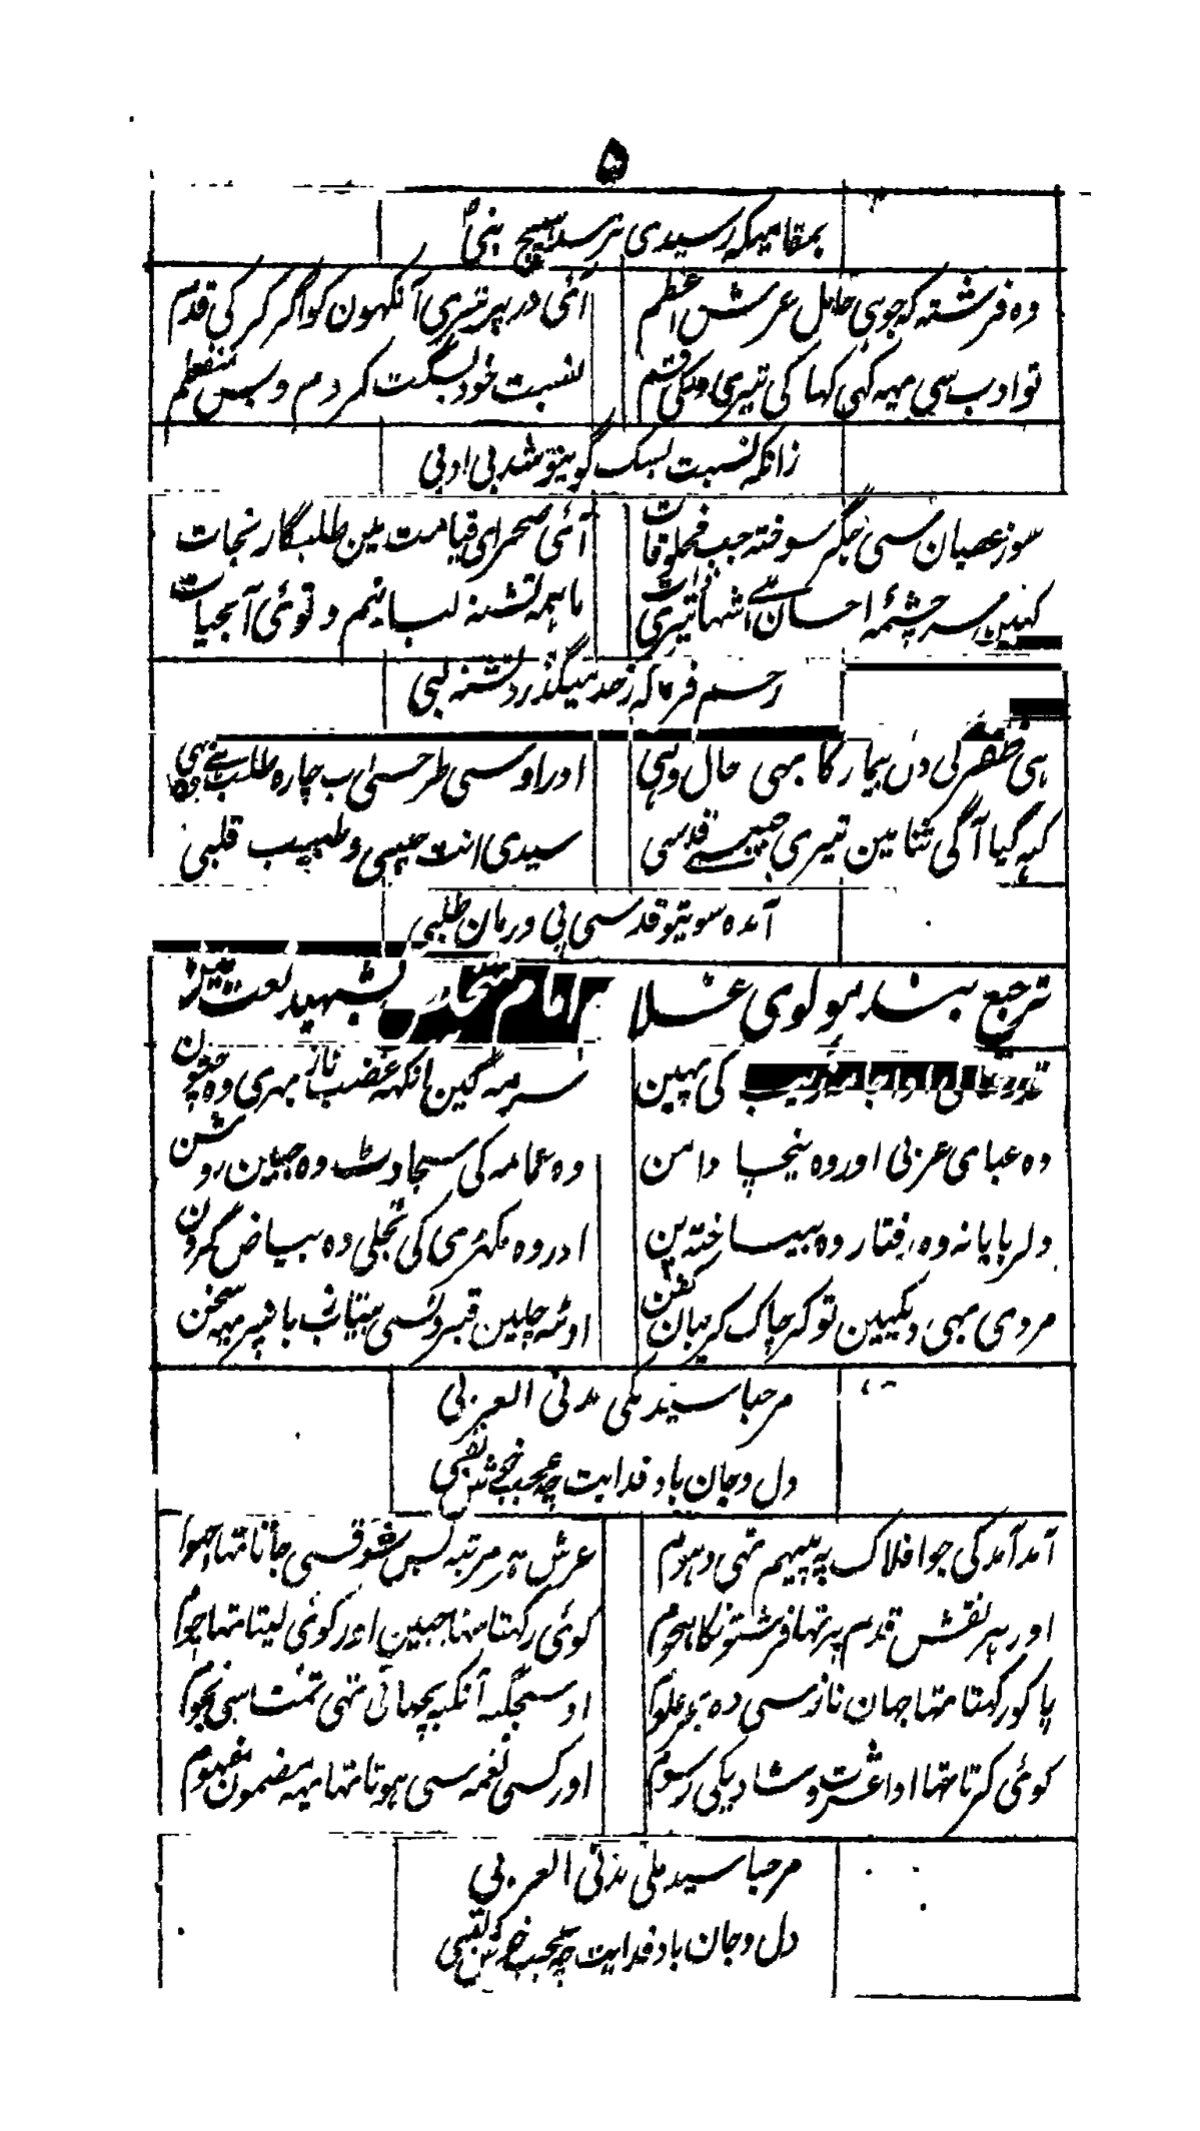 ۵
بمقامیکہ رسیدی نرسد ہیچ نبی
وہ فرشتہ کہ جو ہی حامل عرش اعظم
آئی در پر تیری آنکہون کو اگر کر کی قدم
تو ادب سی یہہ کہی کہا کی تیری قسم
نسبت خود بسگت کردم و بس منفعلم
زانکہ نسبت بسگ کوی تو شد بی ادبی
سوز عصیان سی جگر سوختہ جب مخلوقات
آئی صحرای قیامت مین طلبگار نجات
کہین سر چشمۂ احسان سے
ما ہمہ تشنہ لبانیم و توئی آبحیات
رحم فرما کہ ز حد میگذرد تشنہ لبی
ہی ظفر کی دل بیمار کا بہی حال وہی
اور اوسی طرحسی اب چارہ طلب ہے
کہہ گیا آگی ثنا مین تیری جیسے قدسی
سیدی انت حبیبی و طبیب قلبی
آمدہ سوی تو قدسی پی درمان طلبی
ترجیع بند مولوی غلام امام شہید نعت مین
کی پہبن
سرمہ گین انکہہ غضب ناز بہری وہ چتون
وہ عبای عربی اور وہ نیچا دامن
وہ عمامہ کی سجاوٹ وہ جبین روشن
دلربایانہ وہ رفتار وہ بیساختہ پن
اور وہ مکہڑی کی تجلی وہ بیاض گردن
مردی بہی دیکہین تو کر چاک گریبان کفن
اوٹہ چلین قبرونسی بیتاب با پر یہہ سخن
مرحبا سید مکی مدنی العربی
دل و جان باد فدایت چہ عجب خوش لقبی
آمد آمد کی جو افلاک پہ پیہم تہی دہوم
عرش ہر مرتبہ بس شوق سی جاتا تہا جہوم
اور ہر نقش قدم پر تہا فرشتونکا ہجوم
کوئی رکہتا تہا جبین اور کوئی لیتا تہا چوم
پا کو رکہتا تہا جہان ناز سی وہ بحر علوم
اوسجگہ آنکہہ بچہاتی تہی تمنا سی نجوم
کوئی کرتا تہا ادا عشرت و شادیکی رسوم
اور کسی نغمہ سی ہوتا تہا یہہ مضمون مفہوم
مرحبا سید مکی مدنی العربی
دل و جان باد فدایت چہ عجب خوش لقبی